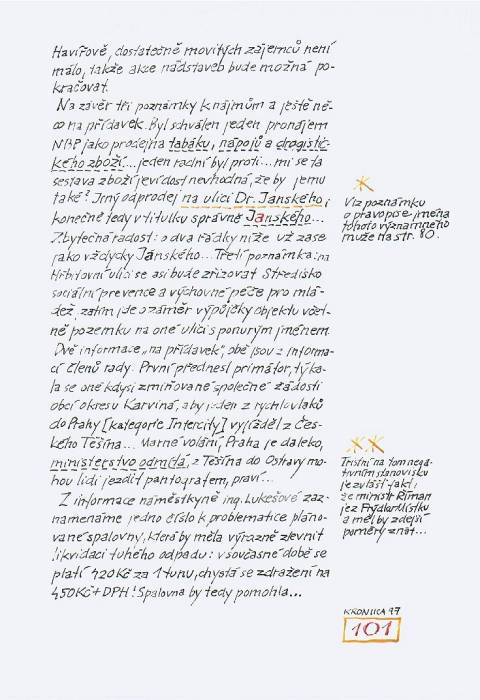 Havířově, dostatečně movitých zájemců není
málo, takže akce nádstaveb bude možná po-
kračovat.
Na závěr tři poznámky k nájmům a ještě ně-
co na přídavek. Byl schválen jeden pronájem
NBP jako prodejna tabáku, nápojů a drogistic-
kého zboží... jeden radní byl proti... mi se ta
sestava zboží jeví dost nevhodná, že by jemu
také? Jiný odprodej na ulici Dr. Janského i
konečně tedy v titulku správně Janského...
Zbytečná radost: o dva řádky níže už zase
jako vždycky Jánského... Třetí poznámka: na
Hřbitovní ulici se asi bude zřizovat Středisko
sociální prevence a výchovné péče pro mlá-
dež, zatím jde o záměr výpůjčky objektu včet-
ně pozemku na oné ulici s ponurým jménem.
Dvě informace „na přídavek", obě jsou z informa-
cí členů rady. První přednesl primátor, týka-
la se oné kdysi zmiňované společné žádosti
obcí okresu Karviná, aby jeden z rychlovlaků
do Prahy [kategorie Intercity] vyjížděl z Čes-
kého Těšína... Marné volání, Praha je daleko,
ministerstvo odmítlá, z Těšína do Ostravy mo-
hou lidi jezdit pantografem, praví...
Z informace náměstkyně ing. Lukešové zaz-
namenáme jedno číslo k problematice pláno-
vané spalovny, která by měla výrazně zlevnit
likvidaci tuhého odpadu: v současné době se
platí 420 Kč za 1 tunu, chystá se zdražení na
450 Kč + DPH! Spalovna by tedy pomohla...
Viz poznámku
o pravopise jména
tohoto významného
muže na str. 80.
Tristní na tom nega-
tivním stanovisku
je zvlášť fakt,
že ministr Říman
je z Frýdku-Místku
a měl by zdejší
poměry znát...
KRONIKA 97
101